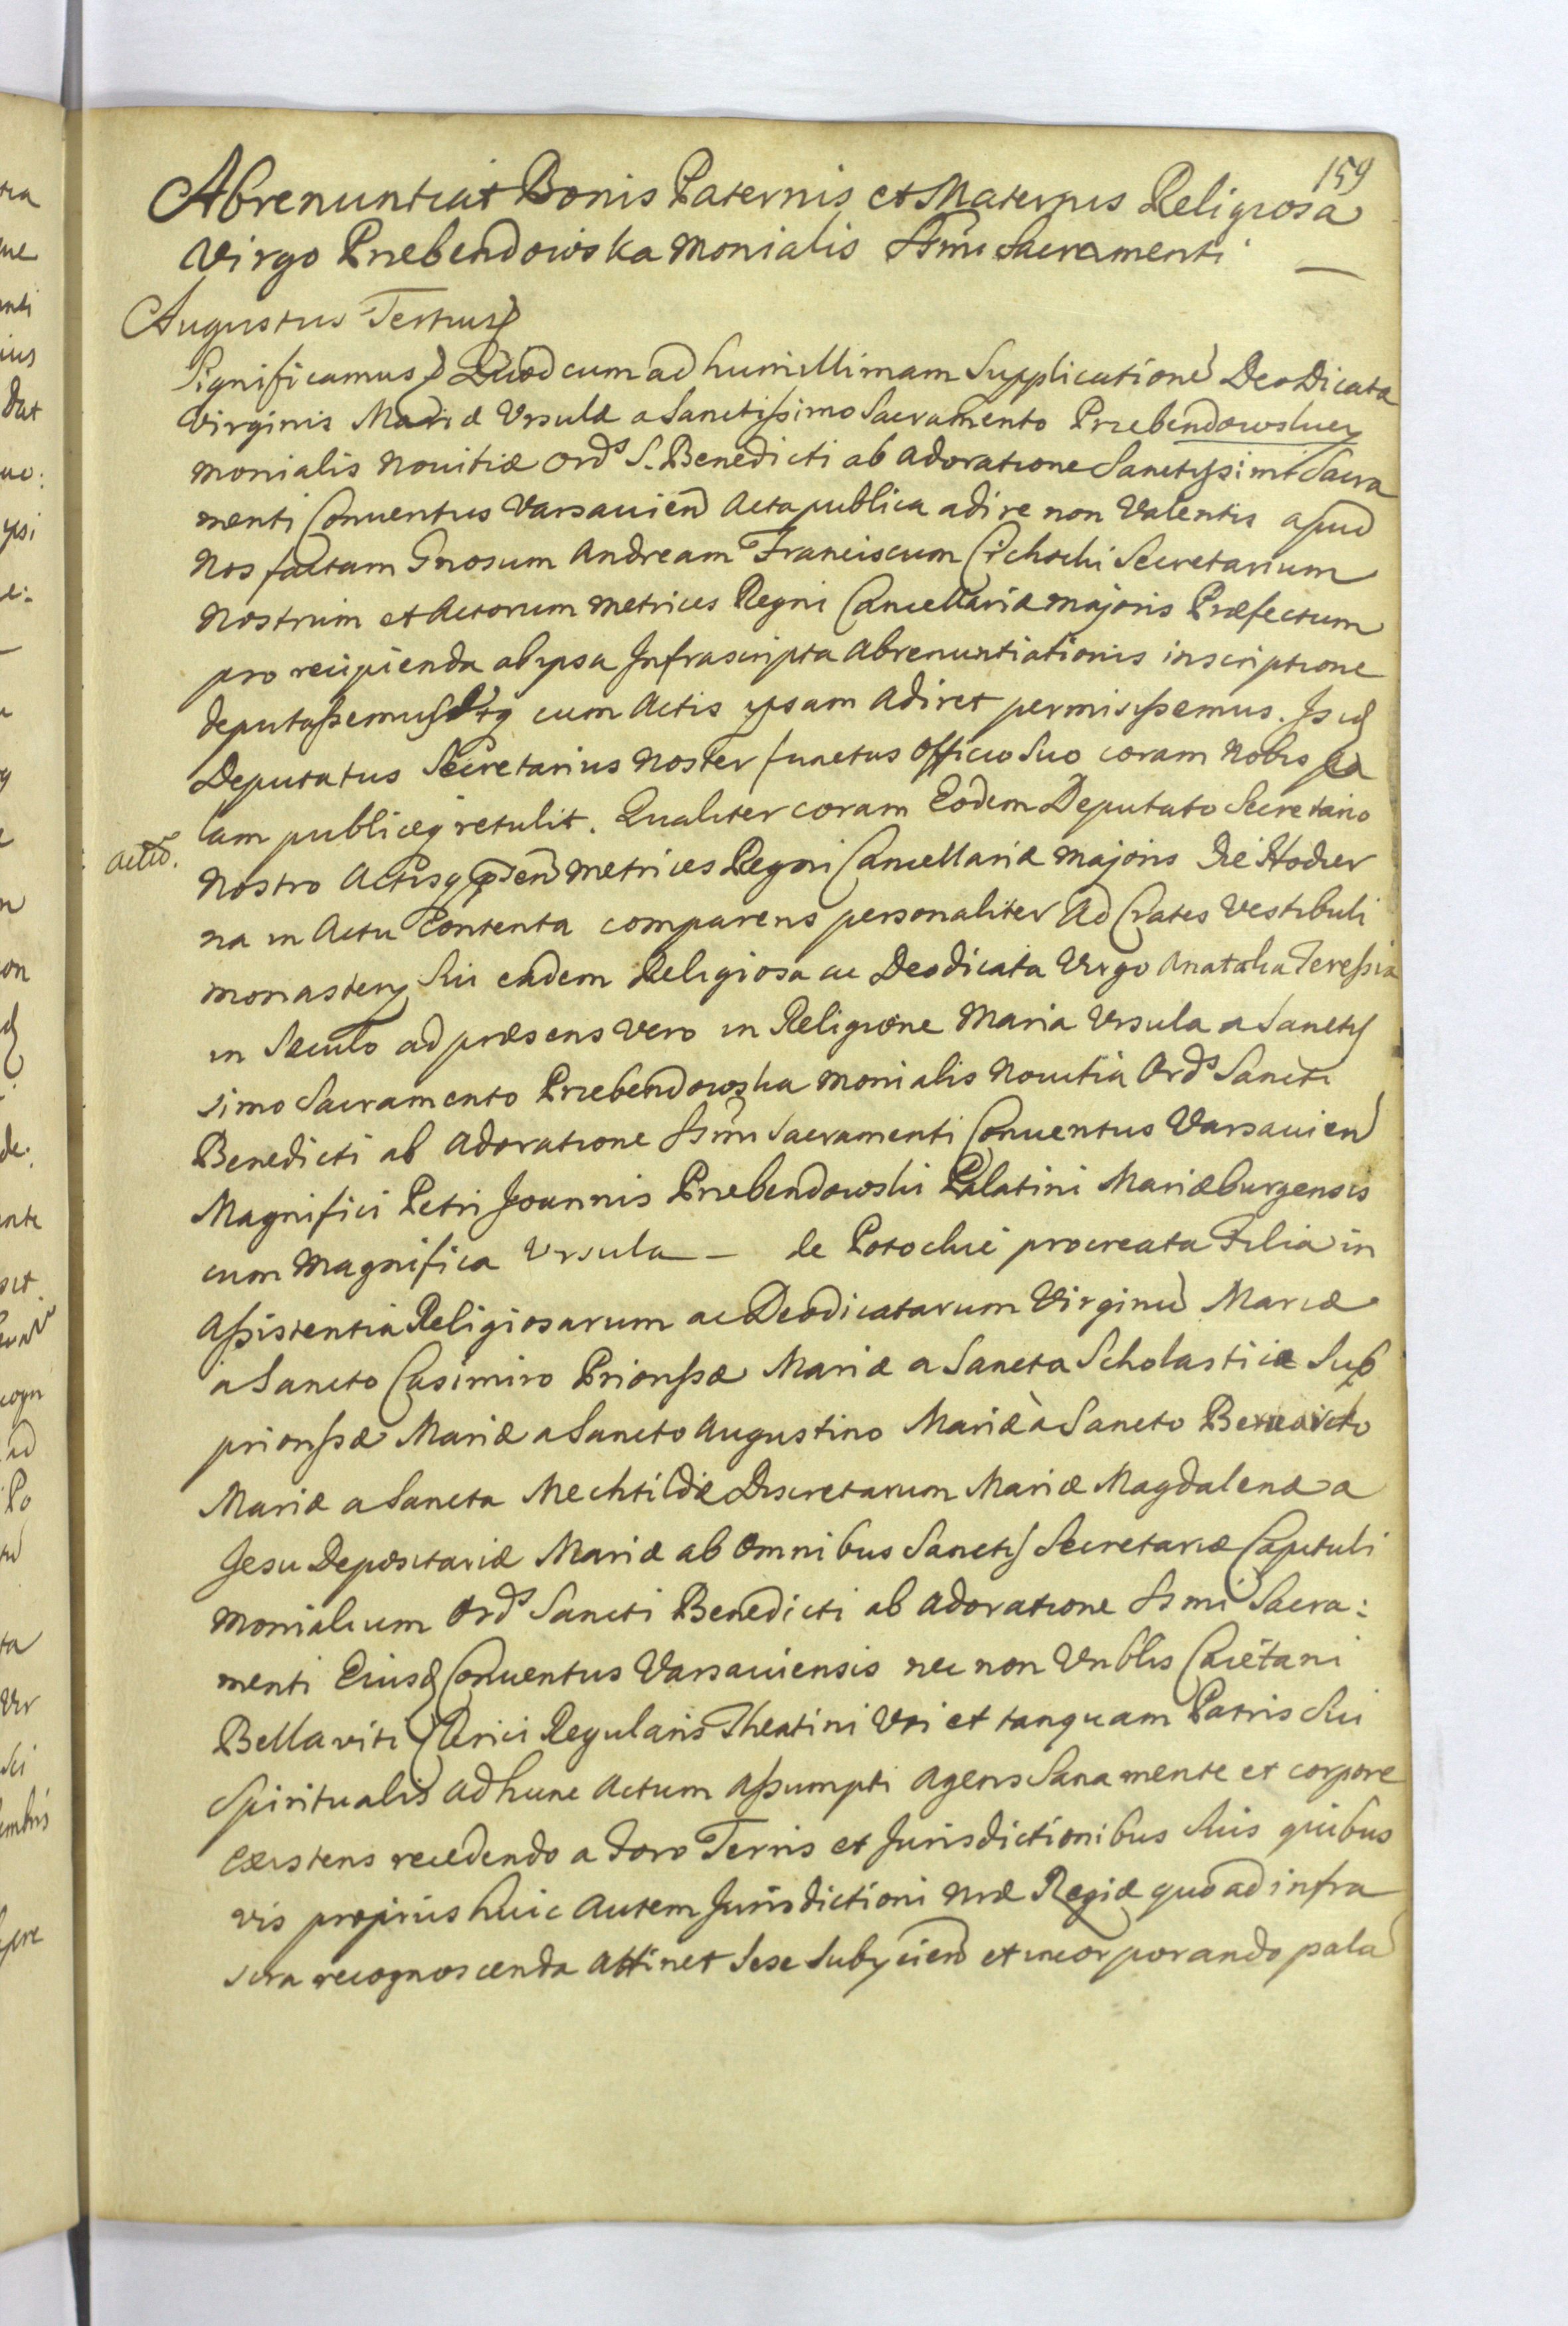 159
Abrenuntiat Bonis Paternis et Maternis Religiosa
Virgo Przebendowska Monialis SSmi Sacramenti
Augustus Tertius
Significamus Quod cum ad humillimam Supplicationē Deodicatæ
Virginis Mariæ Vrsulæ a Sanctissimo Sacramento Przebendowskiey
Monialis Nouitiæ Ord̄s S. Benedicti ab Adoratione Sanctissimi Sacra
menti Conuentus Varsauien̄ Acta publica adire non Valentis apud
Nos factam Gnosum Andream Franciscum Cichocki Secretarium
Nostrum et Actorum Metrices Regni Cancellariæ Majoris Præfectum
pro recipienda ab ipsa Infrascripta Abrenuntiationis inscriptione
deputassemus Utq cum Actis ipsam Adiret permisissemus. Isq
Deputatus Secretarius Noster functus Officio Suo coram Nobis pa
lam publiceq retulit. Qualiter coram Eodem Deputato Secretario
Nostro Actisq p̄sen̄ Metrices Regni Cancellariæ Majoris Die Hodier
na in Actu Contenta comparens personaliter Ad Crates Vestibuli
Monasterij Sui eadem Religiosa ac Deodicata Virgo Anatalia Teressia
in Sæculo ad præsens Vero in Religione Maria Vrsula a Sanctis
simo Sacramento Przebendowska Monialis Nouitia Ord̄s Sancti
Benedicti ab Adoratione SSmi Sacramenti Conuentus Varsauien̄
Magnifici Petri Joannis Przebendowski Palatini Mariæburgensis
cum Magnifica Vrsula — de Potockie procreata Filia in
Assistentia Religiosarum ac Deodicatarum Virginū Mariæ
a Sancto Casimiro Priorissæ Mariæ a Sancta Scholasticæ Sup
priorissæ Mariæ a Sancto Augustino Mariæ à Sancto Benedicto
Mariæ a Sancta Mechtildæ Discretarum Mariæ Magdalenæ a
Jesu Depositariæ Mariæ ab Omnibus Sanctis Secretariæ Capituli
Monialium Ord̄s Sancti Benedicti ab Adoratione SSmi Sacra:
menti Eiusd Conuentus Varsauiensis nec non Vnblis Caietani
Bellaviti Clerici Regularis Theatini Vti et tanquam Patris Sui
Spiritualis ad hunc Actum Assumpti Agens Sana mente et corpore
existens recedendo a Foro Terris et Jurisdictionibus Suis quibus
vis proprijs huic Autem Jurisdictioni Nræ Regiæ quo ad infra
scra recognoscenda Attinet Sese Subijcien̄ et incorporando palā